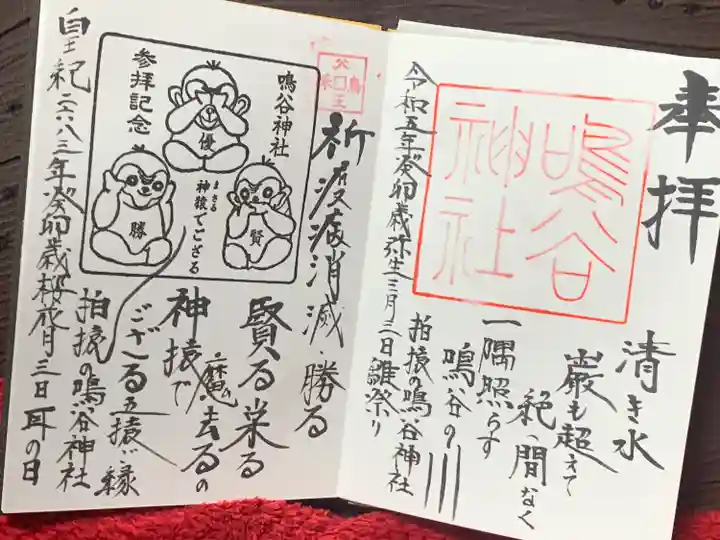 奉拝
鳴谷
神社
令和五年癸卯歳弥生三月三日雛祭り
清き水
巌も超えて
絶へ間なく
一隅照らす
鳴谷の川
拍猿の鳴谷神社
祈疫病消滅・勝る
賢る栄る
魔の去るの
神猿で
ござる五猿ご縁
拍猿の鳴谷神社
鳴谷神社
参拝記念
優
勝
賢
まさる
神猿でござる
皇紀二六八三年癸卯歳桜月三日耳の日